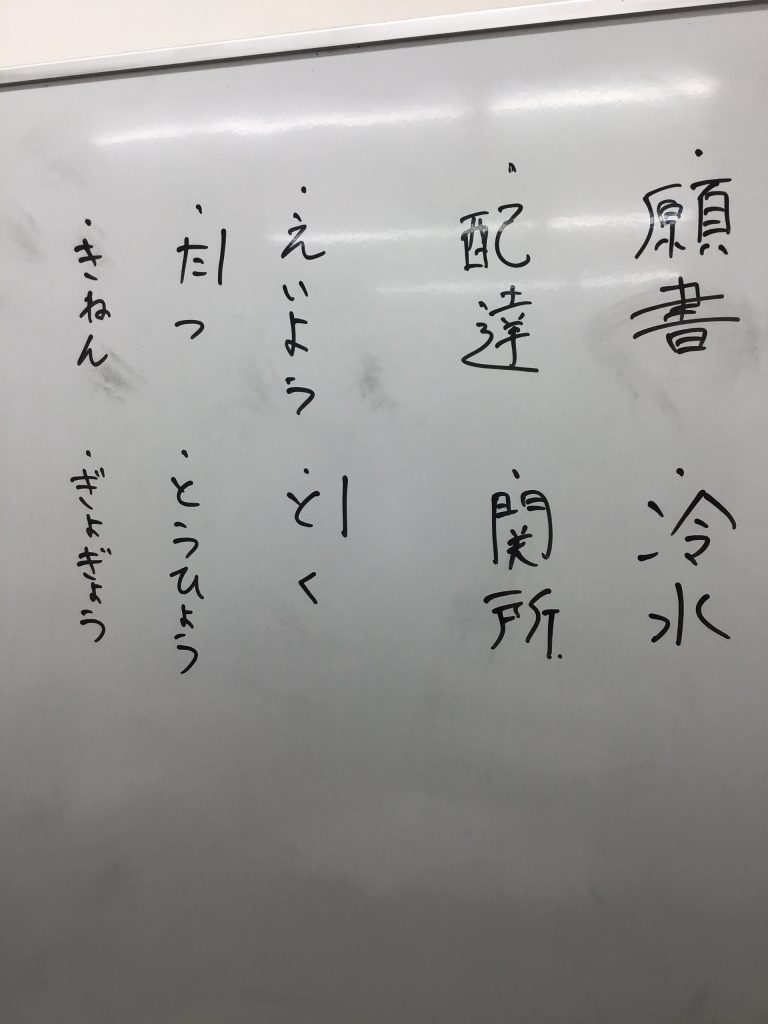 ・願書
・冷水
・配達
・関所
・えいよう
・とく
・だつ
・とうひょう
・きねん
・ぎょぎょう